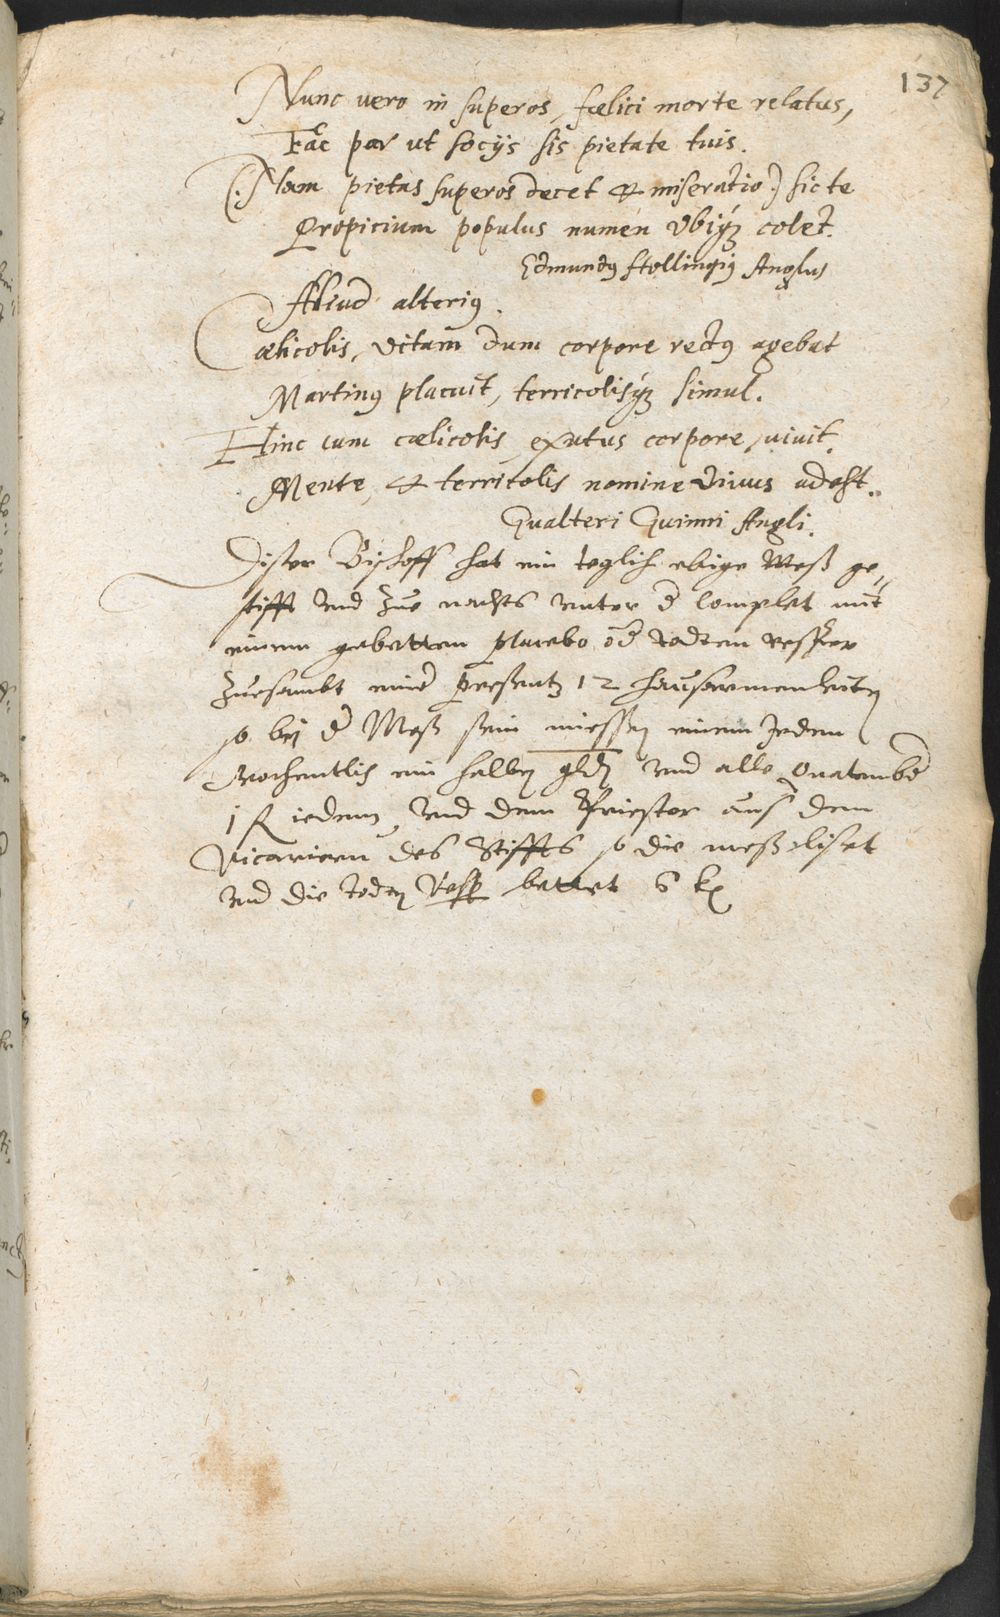 137
Nunc vero in superos, fælici morte relatus,
Fac par ut socijs sis pietate tuis.
(: Nam pietas superos decet & miseratio :) sic te
Propicium populus numen vbiqz colet.
Edmundq Hollingiq Anglus
Aliud alteriq.
Cælicolis, vitam dum corpore rectq agebat
Martinq placuit, terricolisqz simul.
Hinc cum cælicolis, exutus corpore, vivit
Mente, & terricolis nomine vivus adest.
Gualteri Quinni Angli.
Diser Bischoff hat ein teglich ebige Meß ge„
stifft und zue nachts unter d Complet mit
einem gebetten placebo od todten vesper
zuesambt einer presentz 12 hausarmenleuten
so bei d Meß sein miessen einem Jeden
wochentlich ein halben gldn und alle Quatember
1 R iedem, und dem Priester aus dem
Vicarieren des Stiffts so die meß liset
und die todten Vesp bettet 6 kr